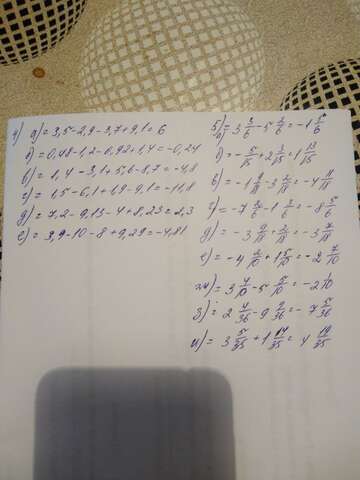 4) а) = 3,5 - 2,9 - 3,7 + 9,1 = 6
б) = 0,48 - 1,2 - 0,92 + 1,4 = -0,24
в) = 1,4 - 3,1 + 5,6 - 8,7 = -4,8
г) = 1,5 - 6,1 + 1,9 - 9,1 = -11,8
д) = 7,2 - 9,13 - 4 + 8,23 = 2,3
е) = 3,9 - 10 - 8 + 9,29 = -4,81
5) а) = 3 3/6 - 5 2/6 = -1 5/6
б) = - 5/15 + 2 3/15 = 1 13/15
в) = -1 9/18 - 3 2/18 = -4 11/18
г) = -7 3/6 - 1 2/6 = -8 5/6
д) = -3 9/18 + 2/18 = -3 7/18
е) = -4 2/10 + 1 5/10 = -2 7/10
ж) = 3 4/10 - 5 5/10 = -2 1/10
з) = 2 4/36 - 9 9/36 = -7 5/36
и) = 3 5/35 + 1 14/35 = 4 19/35